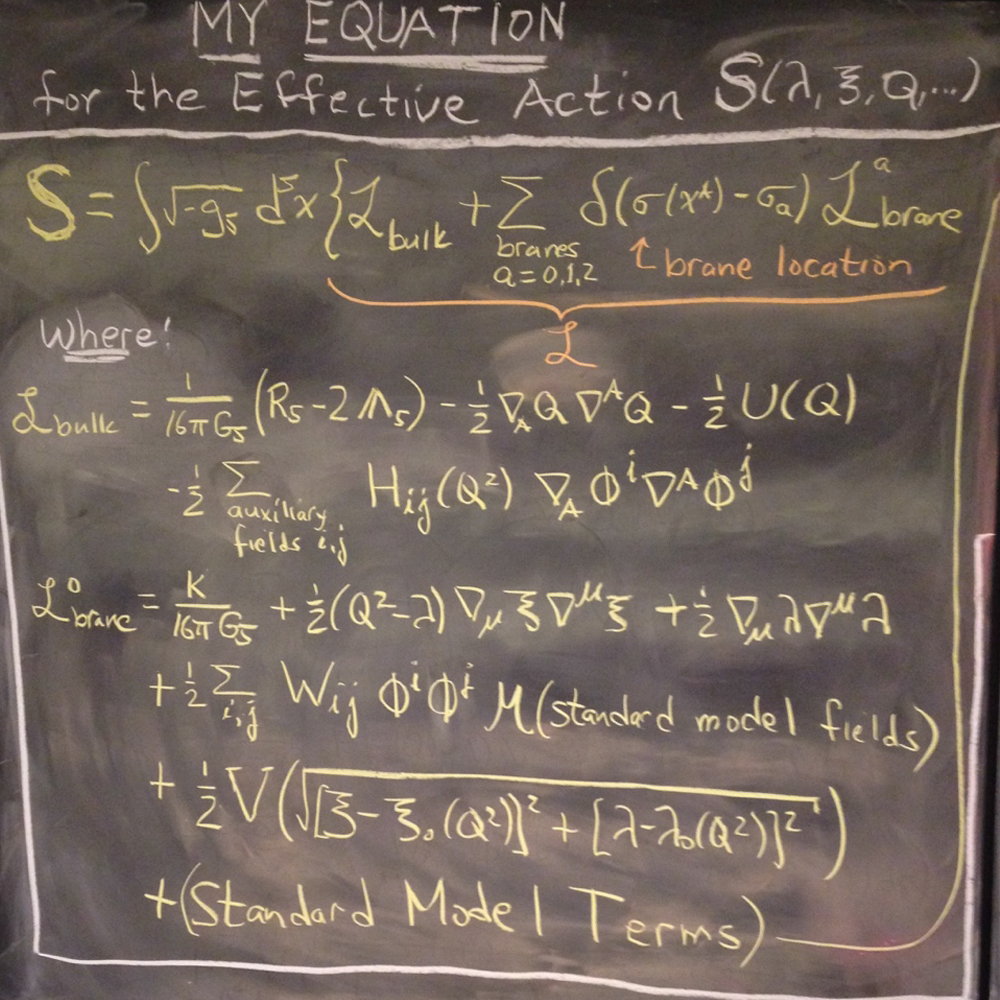 MY EQUATION
for the Effective Action S(λ, ξ, Q, ...)
S = ∫√-g₅ d⁵x { ℒ_bulk + Σ_{branes a=0,1,2} δ(σ(x^A) - σ_a) ℒ^a_brane
↑ brane location
ℒ
Where!
ℒ_bulk = 1/(16πG₅) (R₅ - 2Λ₅) - ½ ∇_A Q ∇^A Q - ½ U(Q)
- ½ Σ_{auxiliary fields i,j} H_ij(Q²) ∇_A Φ^i ∇^A Φ^j
ℒ⁰_brane = K/(16πG₅) + ½(Q² - λ) ∇_μ ξ ∇^μ ξ + ½ ∇_μ λ ∇^μ λ
+ ½ Σ_{i,j} W_ij Φ^i Φ^j M(standard model fields)
+ ½ V(√([ξ - ξ₀(Q²)]² + [λ - λ₀(Q²)]²))
+ (Standard Model Terms)